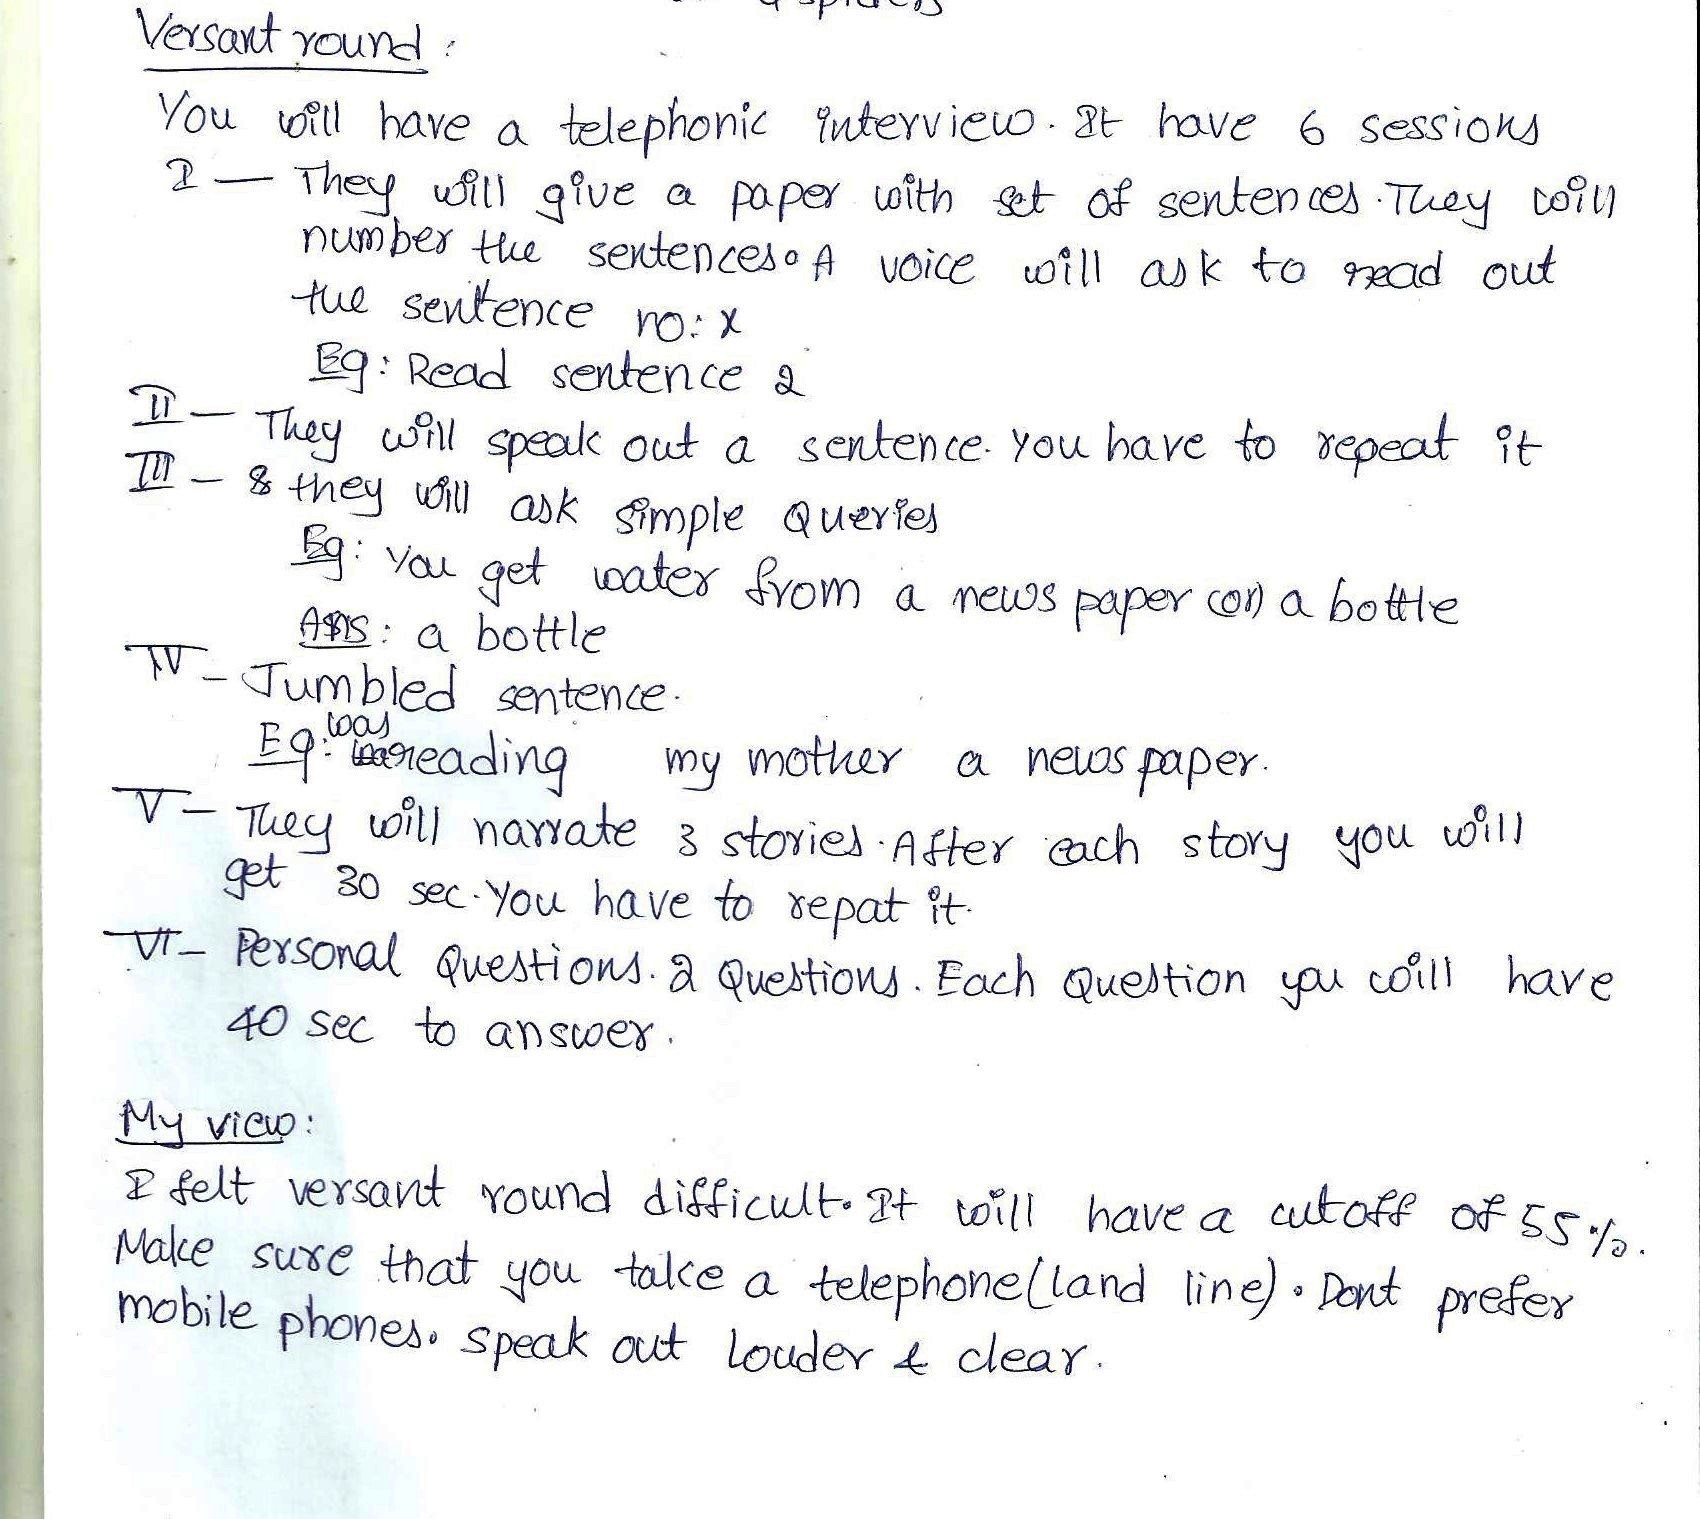 Versant round :
You will have a telephonic interview. It have 6 sessions
I — They will give a paper with set of sentences. They will
number the sentences. A voice will ask to read out
the sentence no: x
Eg: Read sentence 2
II — They will speak out a sentence. You have to repeat it
III — & they will ask simple Queries
Eg: You get water from a news paper (or) a bottle
Ans: a bottle
IV — Jumbled sentence.
Eg: was reading my mother a news paper.
V — They will narrate 3 stories. After each story you will
get 30 sec. You have to repat it.
VI — Personal Questions. 2 Questions. Each Question you will have
40 sec to answer.
My view:
I felt versant round difficult. It will have a cutoff of 55%.
Make sure that you take a telephone (land line). Dont prefer
mobile phones. Speak out louder & clear.